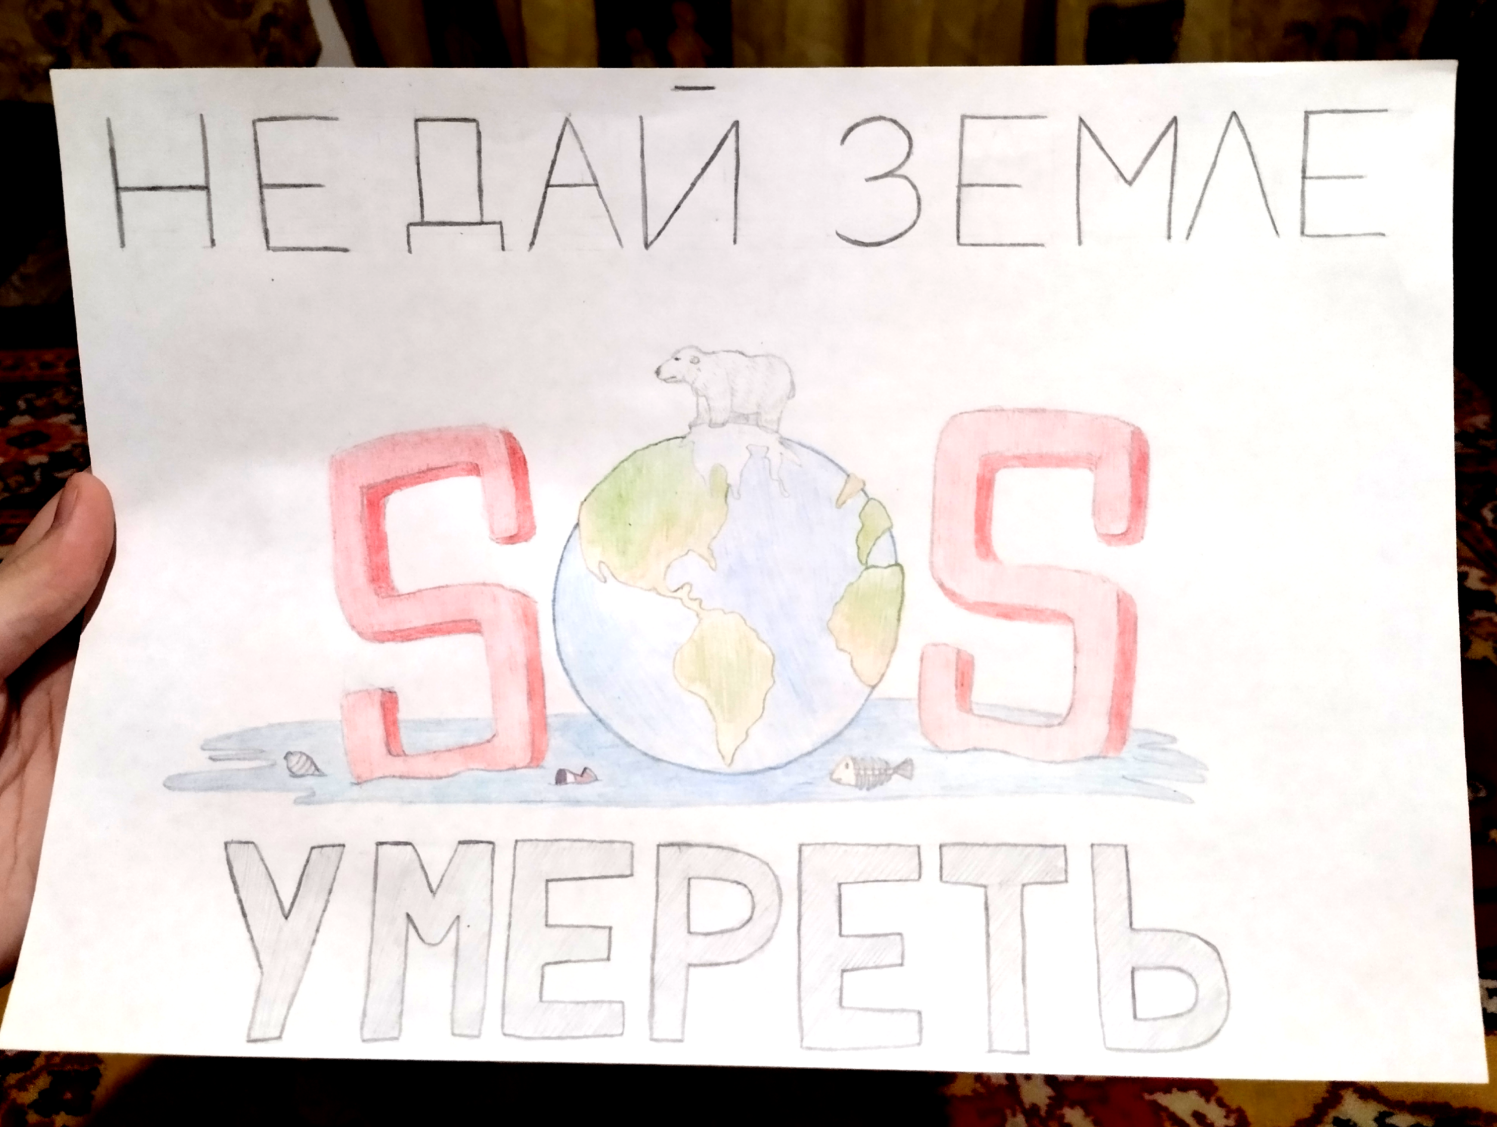 НЕ ДАЙ ЗЕМЛЕ
SOS
УМЕРЕТЬ